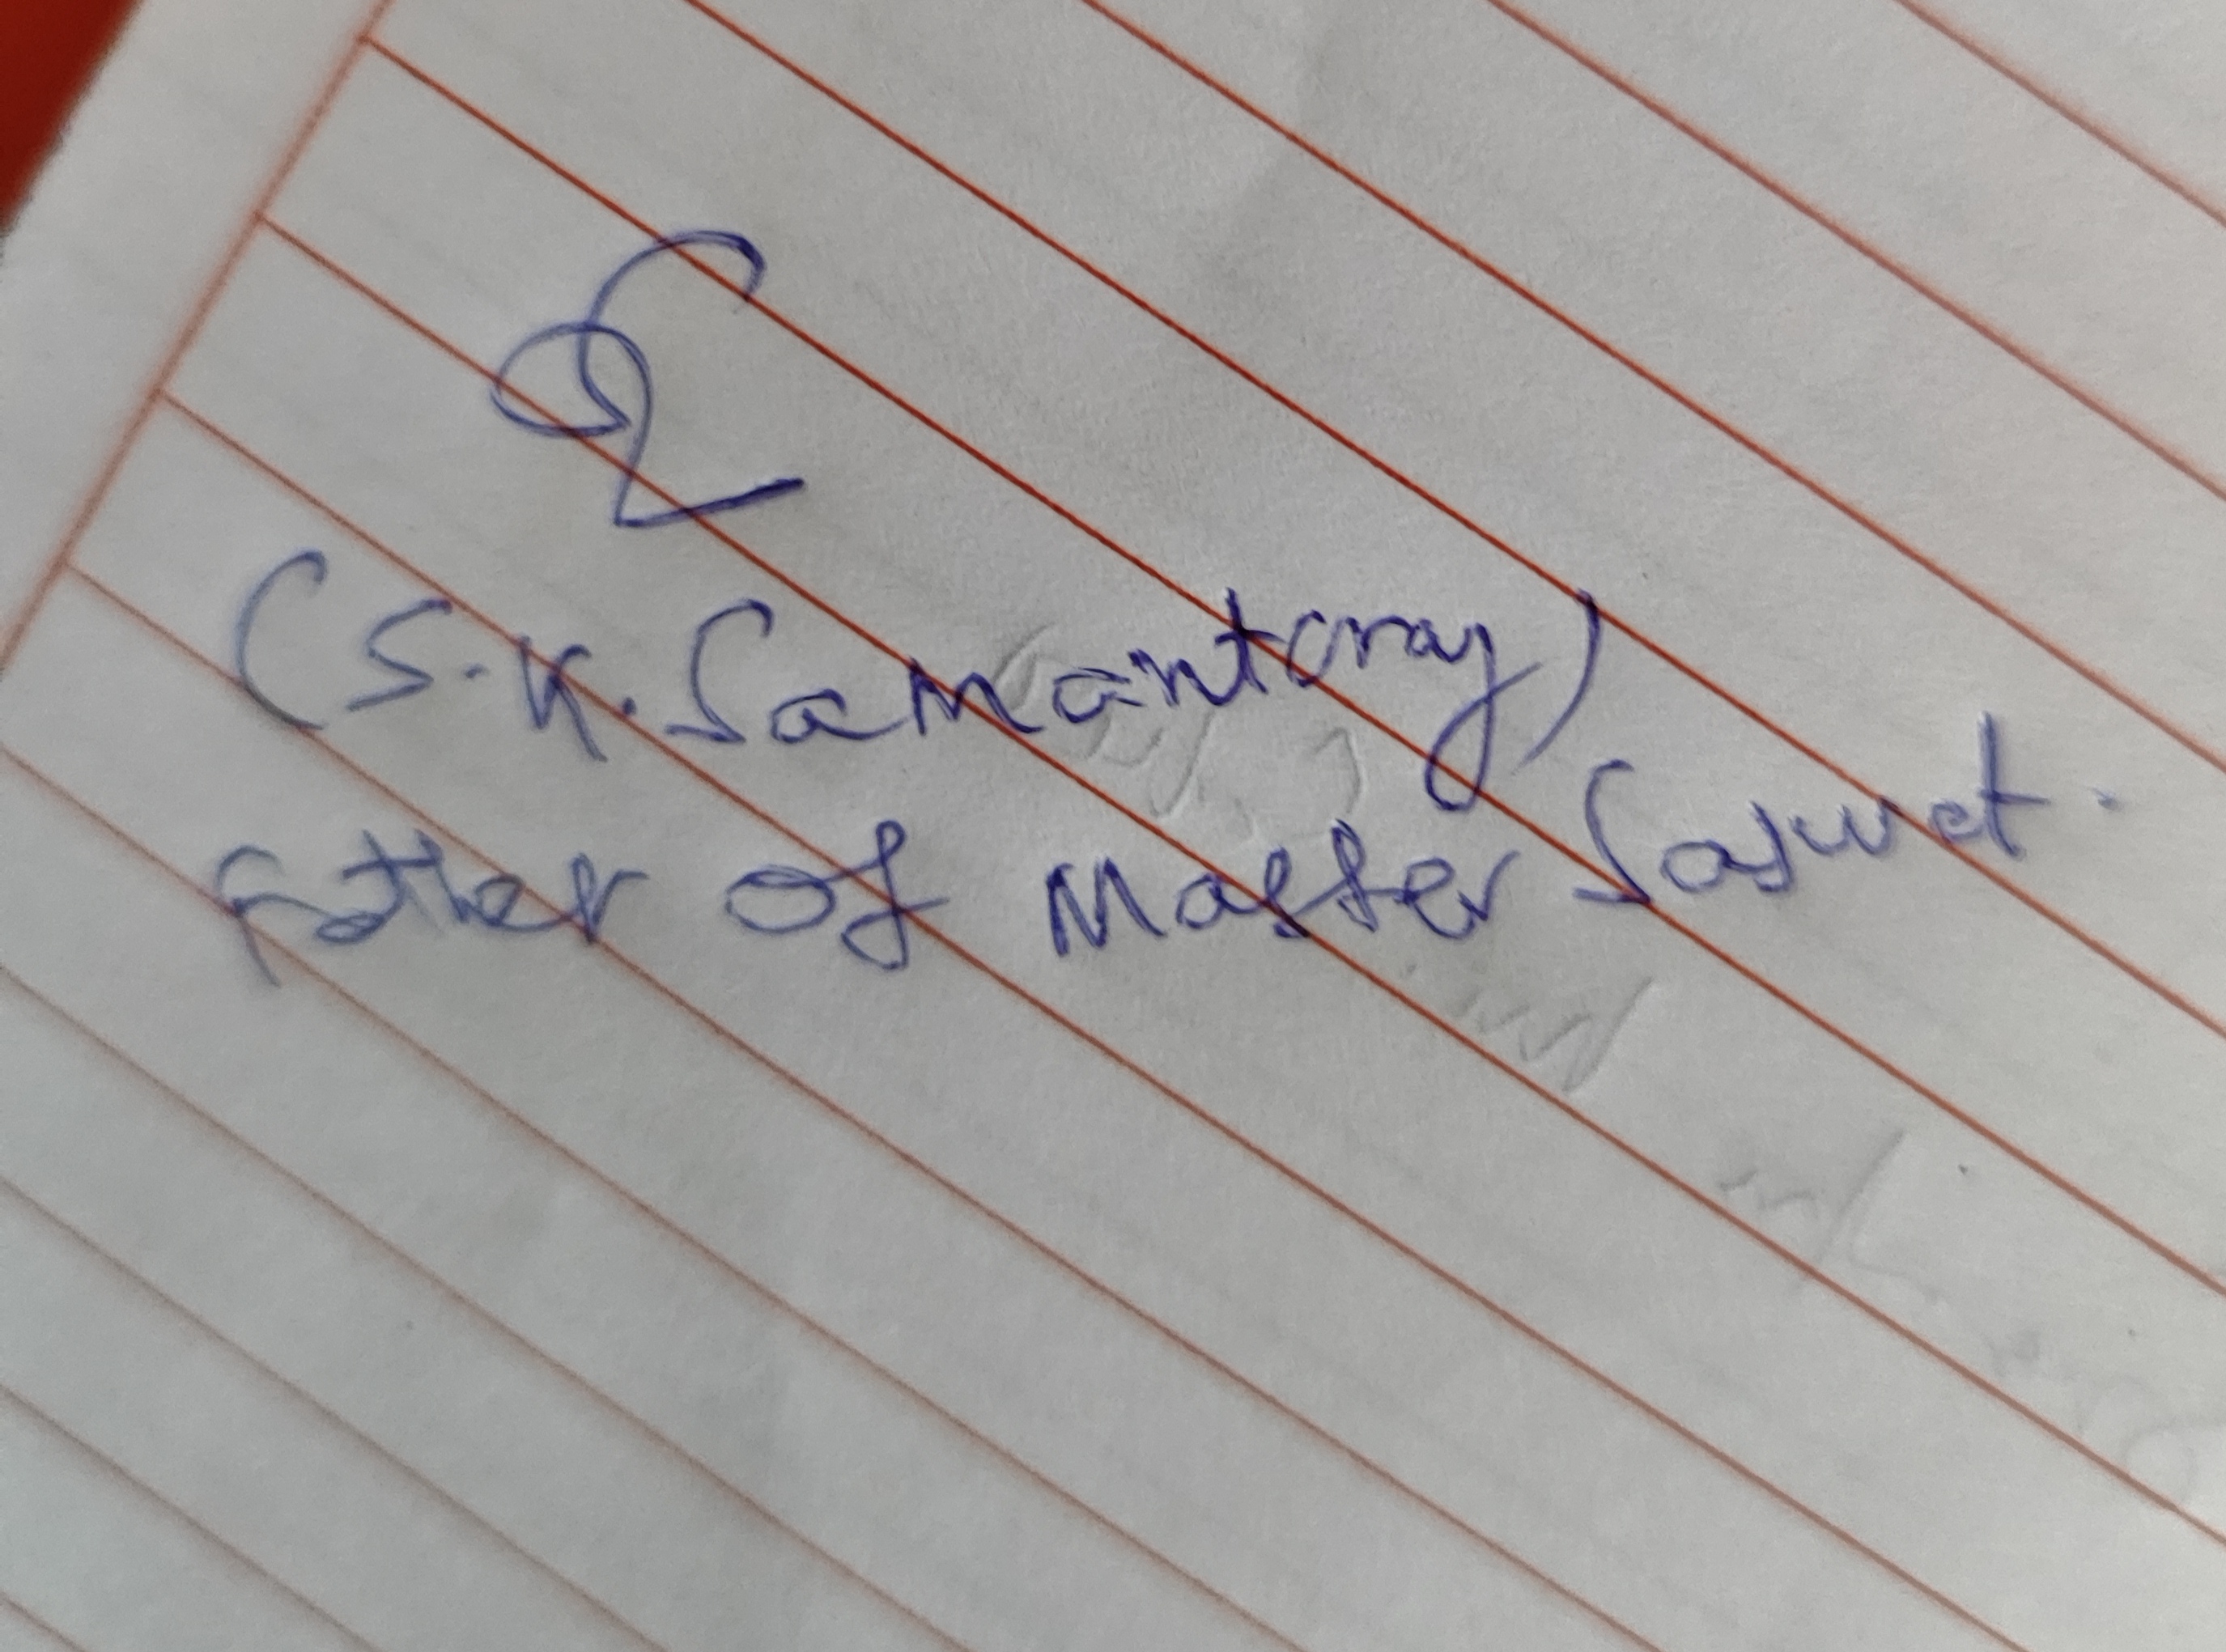 (S.K. Samantaray)
Father of Master